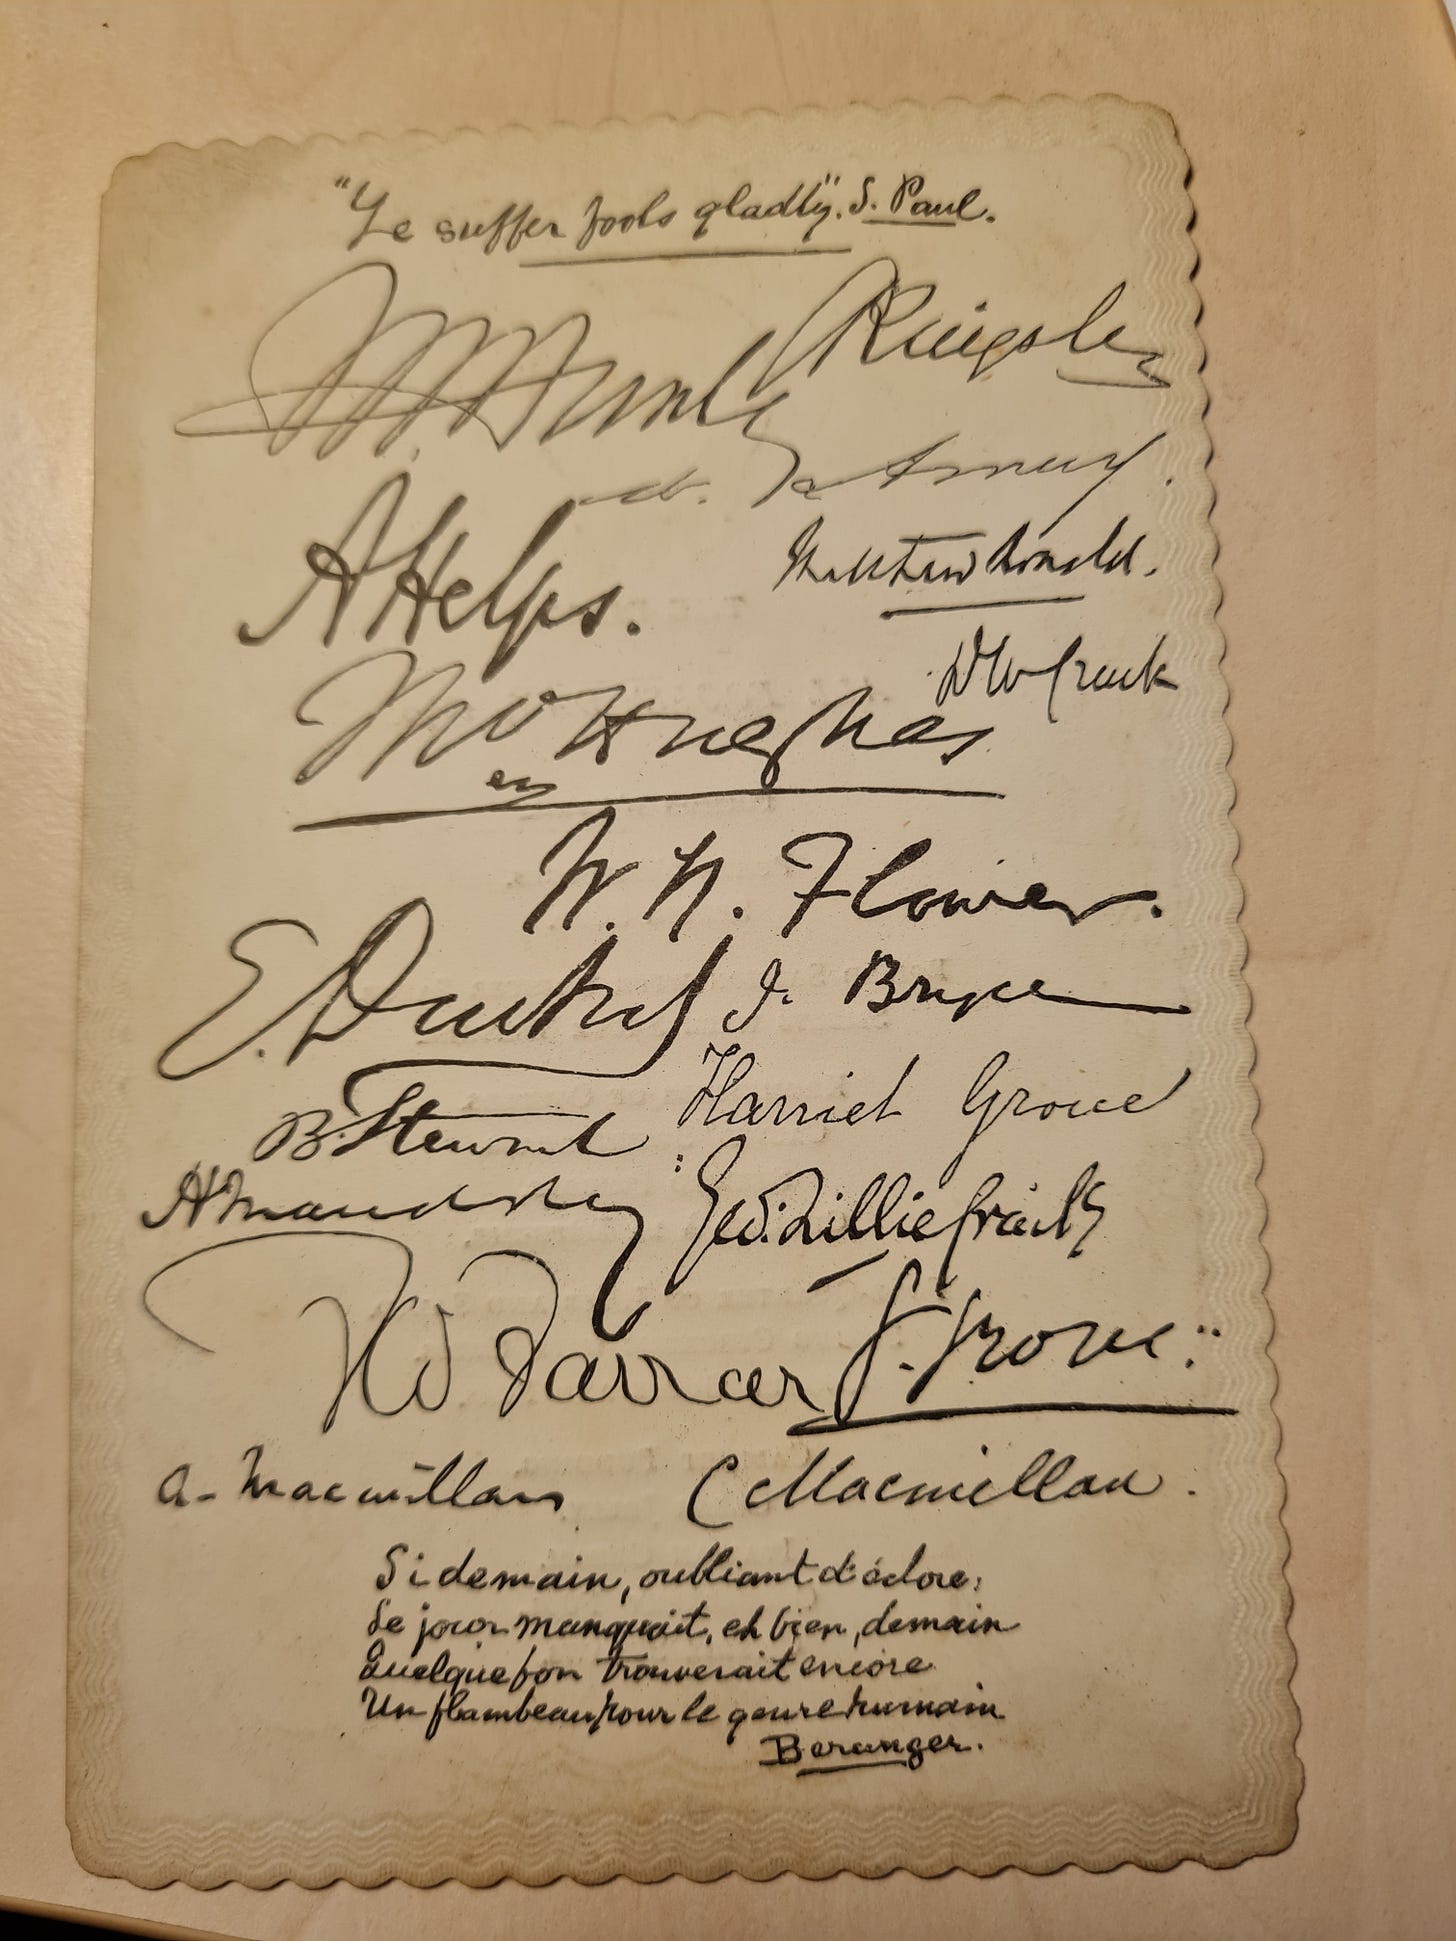 "Ye suffer fools gladly". S. Paul.
C Kingsley
A Helps.
Matthew Arnold.
Tho Hughes
W. H. Flower.
E. Deutsch
J. Bryce
B. Stewart
Harriet Grove
H Maudsley
Geo: Lillie Craik
FW Farrar
G. Grove:
A. Macmillan
C Macmillan.
Si demain, oubliant d'éclore,
Le jour manquait, eh bien, demain
Quelque fou trouverait encore
Un flambeau pour le genre humain
Beranger.